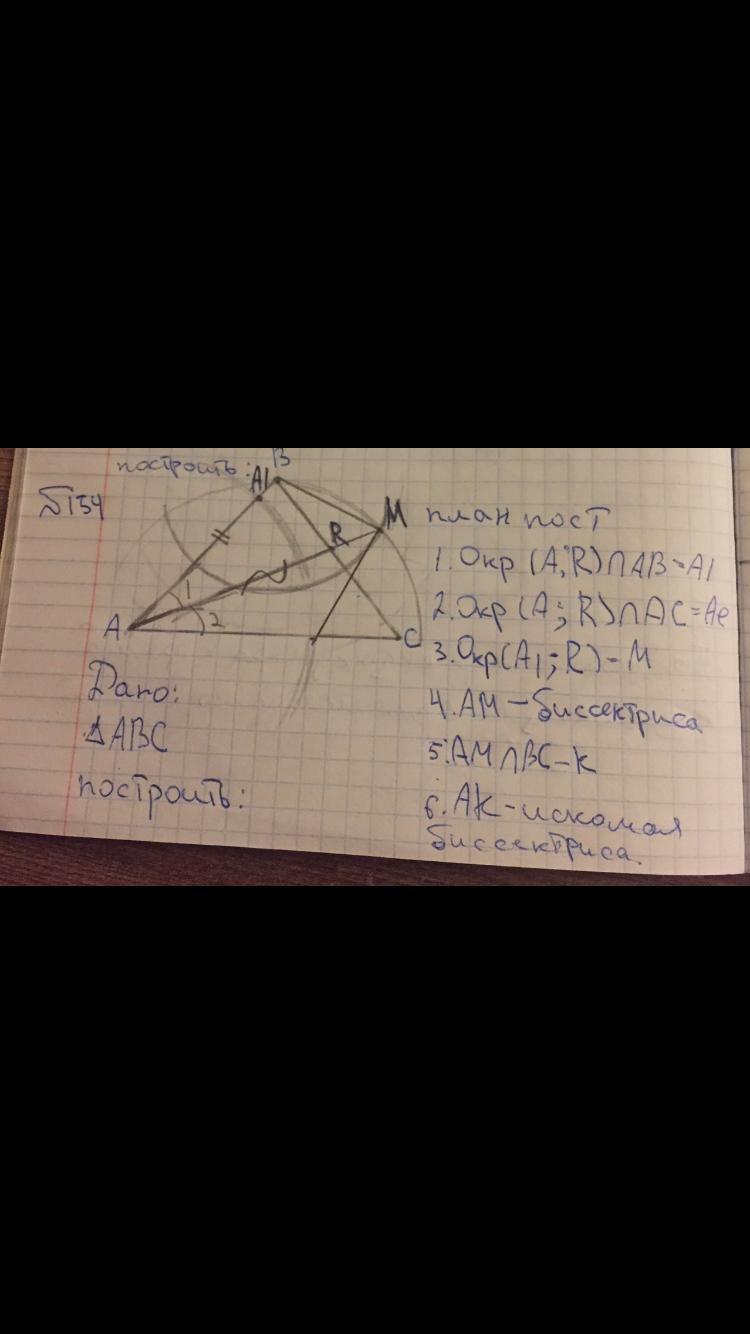 построить:
№154
B
A1
M
R
1
2
A
C
Дано:
ΔABC
построить:
план пост
1. Окр (A; R)∩AB=A1
2. Окр (A; R)∩AC=Ae
3. Окр(A1; R)-M
4. AM - биссектриса
5. AM∩BC-K
6. AK-искомая
биссектриса.